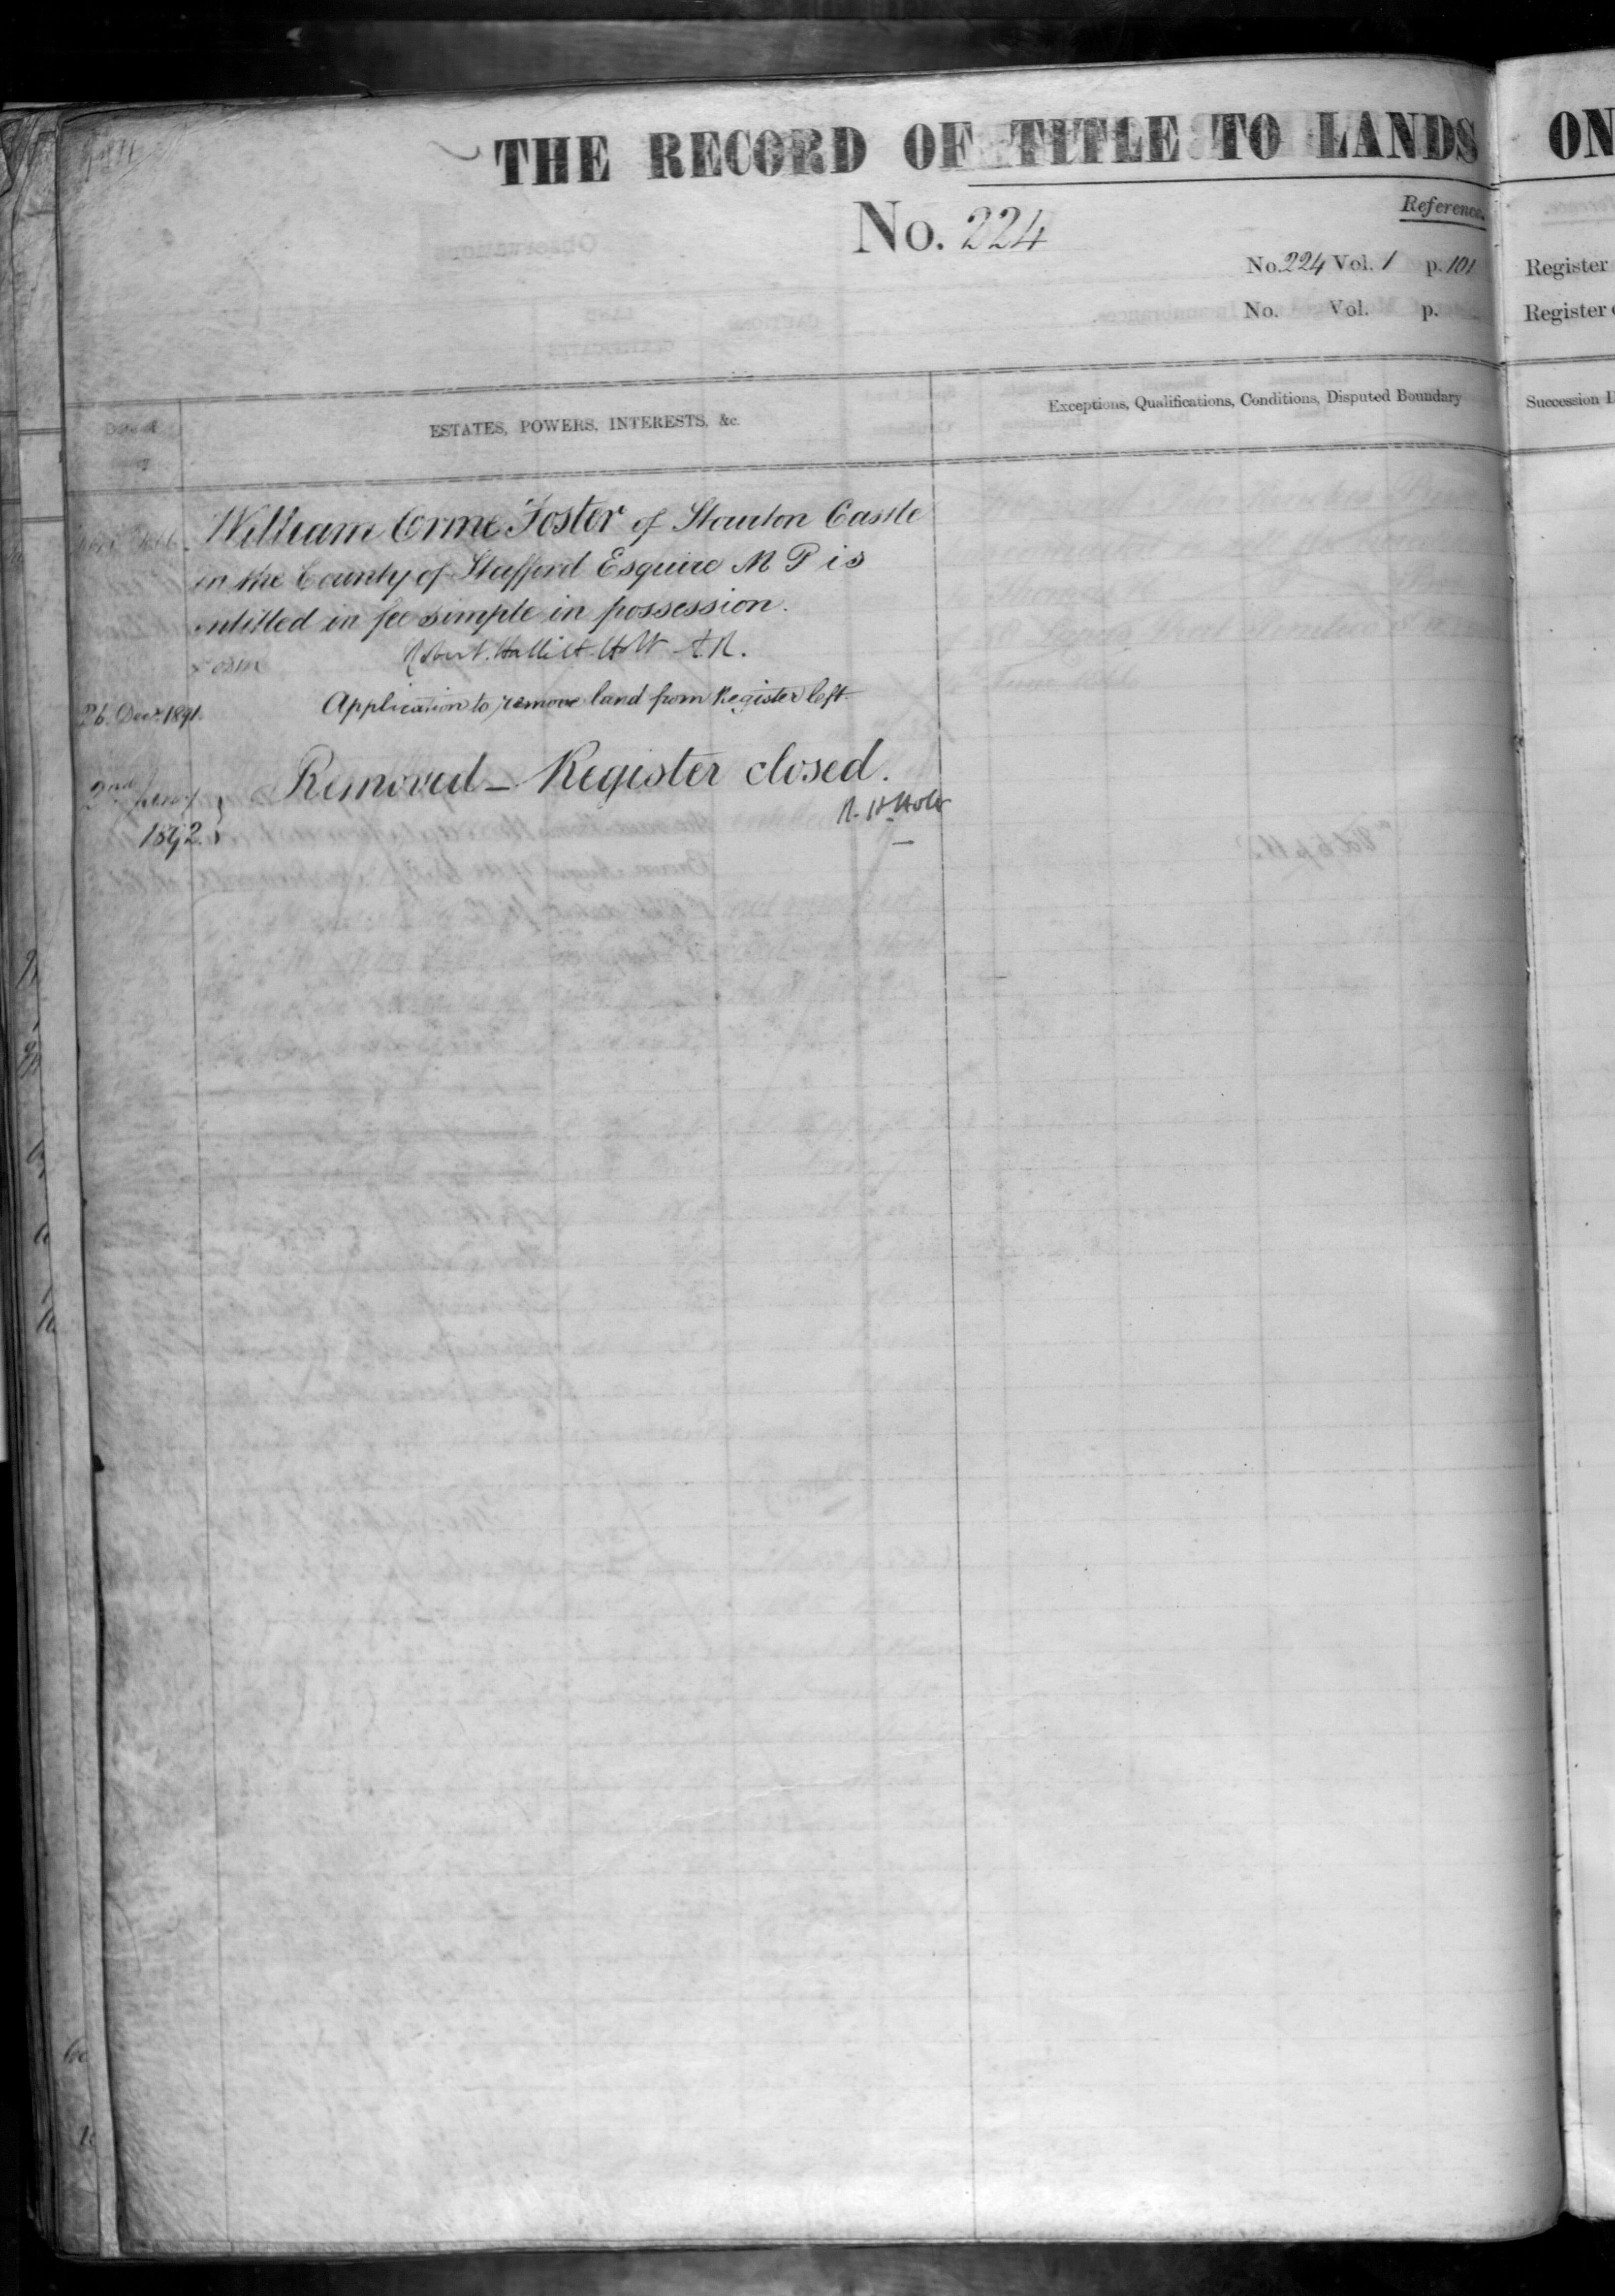 THE RECORD OF TITLE TO LANDS
ON
No. 224
Reference.
No. 224 Vol. 1 p. 101
Register
No. Vol. p.
Register
ESTATES, POWERS, INTERESTS, &c.
Exceptions, Qualifications, Conditions, Disputed Boundary
Succession
William Orme Foster of Stourton Castle
in the County of Stafford Esquire M P is
entitled in fee simple in possession.
Robert Hallett Holt A.R.
26. Decr. 1891. Application to remove land from Register left.
2nd Jany Removed _ Register closed.
1892. R. H. Holt